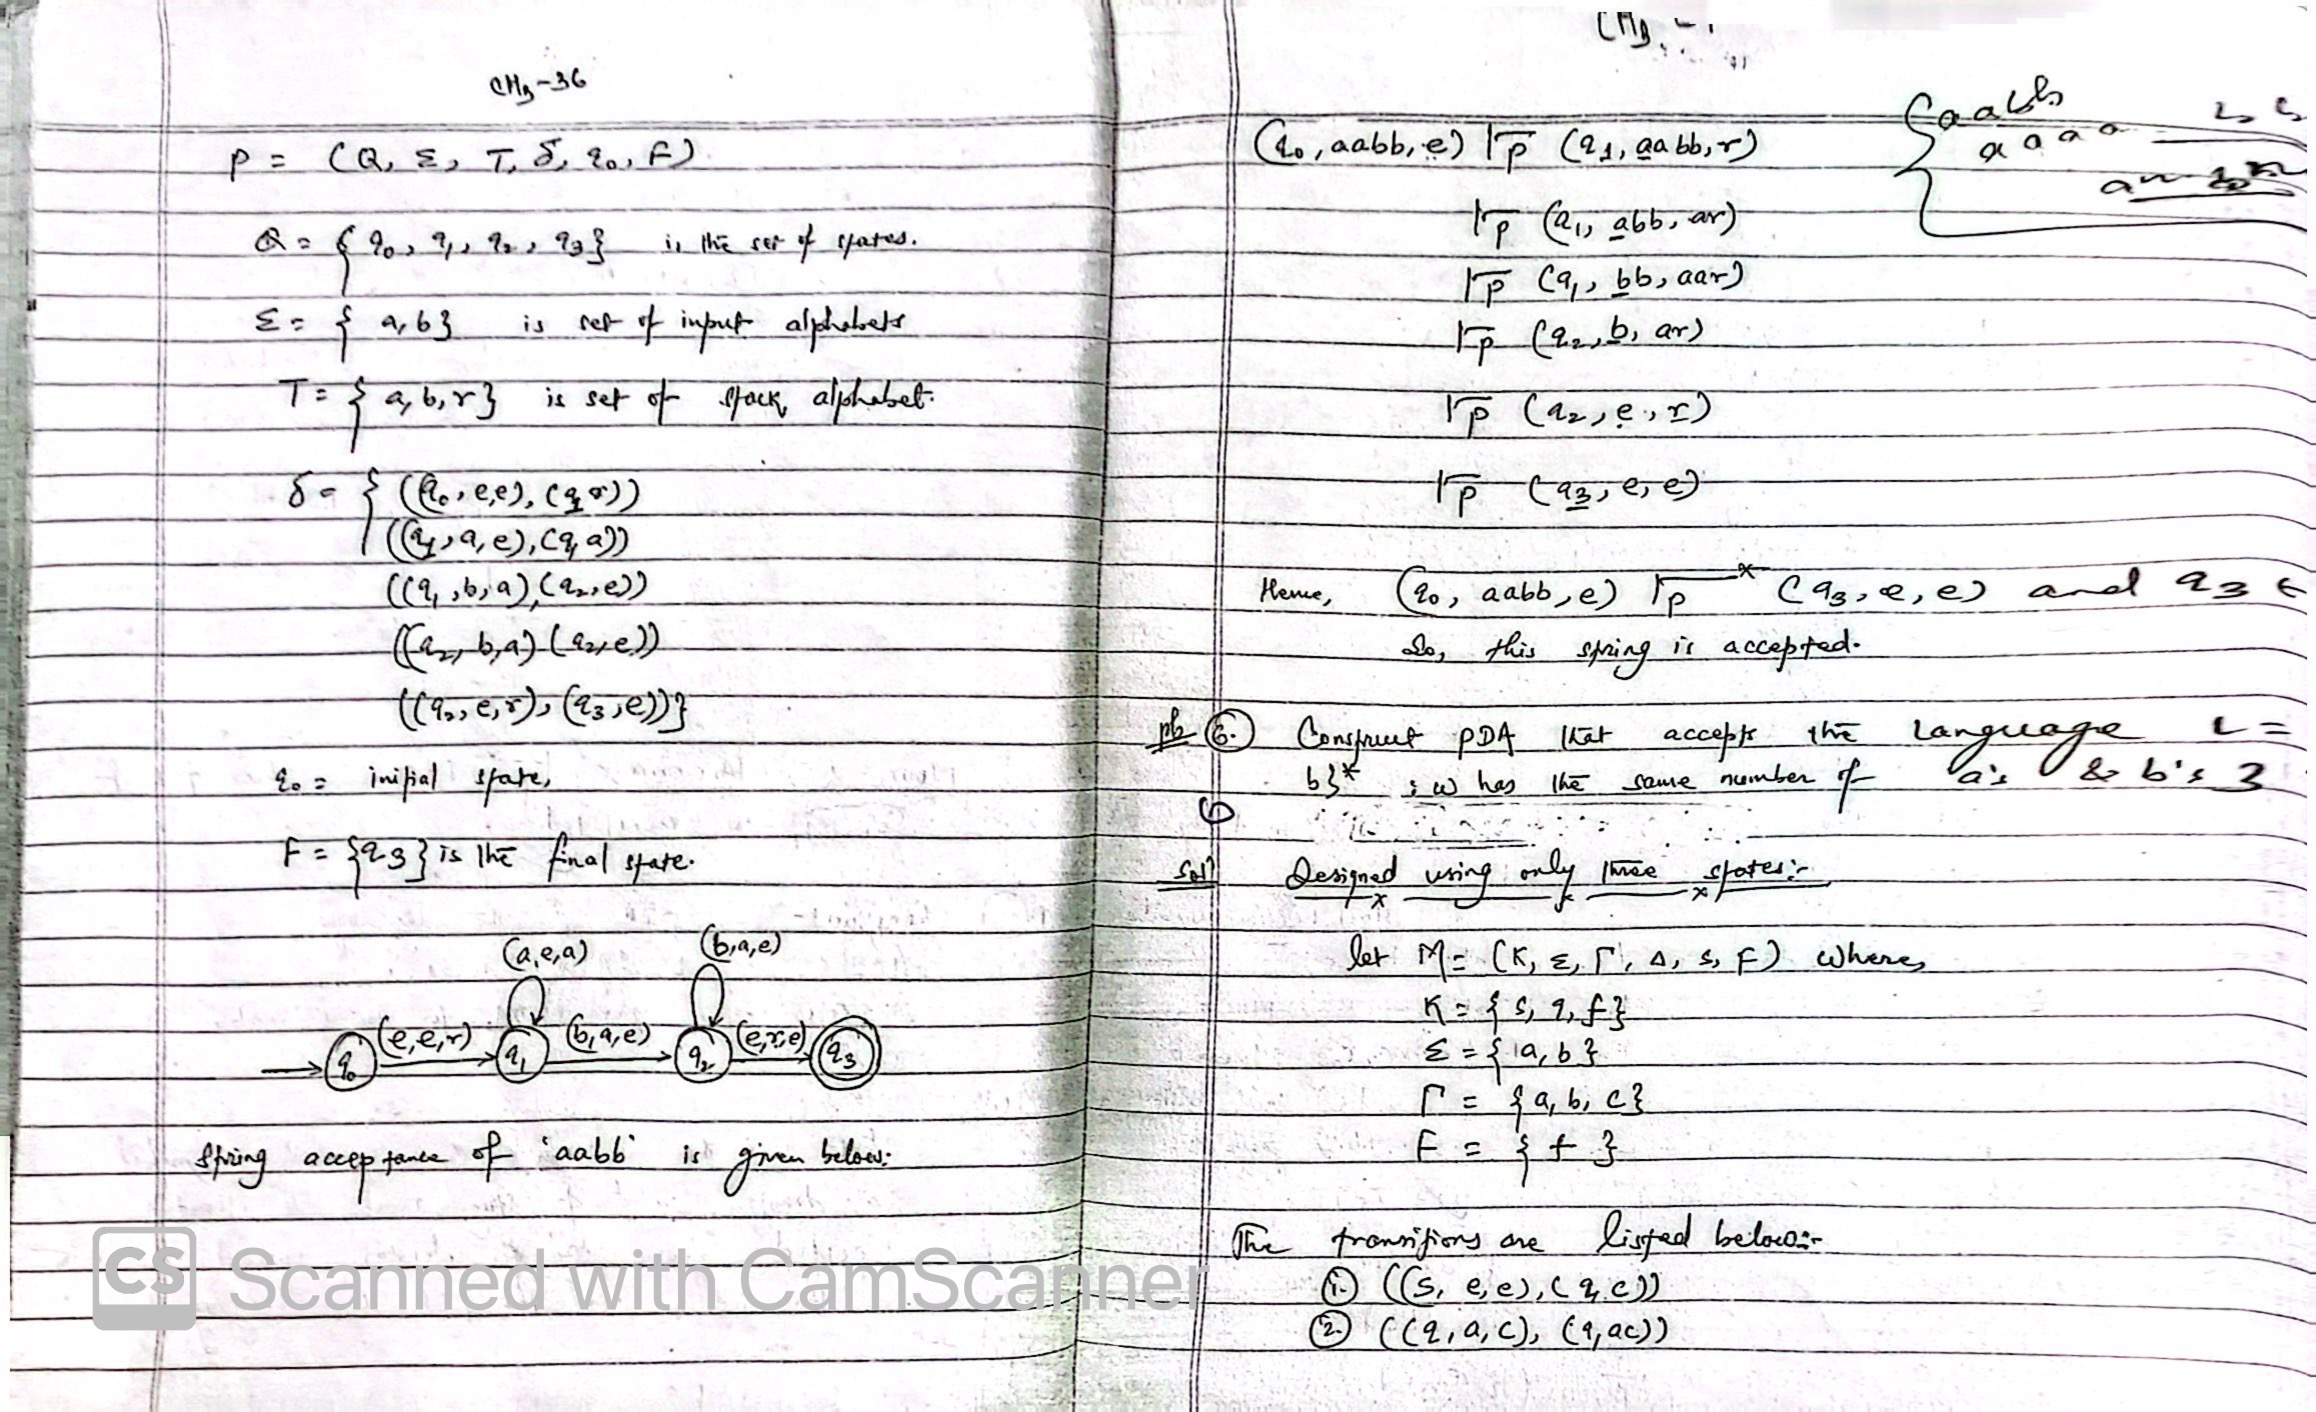 CH3-36
P = (Q, Σ, T, δ, q0, F)
Q = { q0, q1, q2, q3} is the set of states.
Σ = { a, b} is set of input alphabets
T = { a, b, r} is set of stack alphabet.
δ = { ((q0, e,e), (q1 r))
((q1, a, e), (q1 a))
((q1, b, a), (q2, e))
((q2, b, a) (q2, e))
((q2, e, r), (q3, e))}
q0 = initial state,
F = {q3} is the final state.
(a,e,a) (b,a,e)
q0 (e,e,r) q1 (b,a,e) q2 (e,r,e) q3
String acceptance of 'aabb' is given below:
CS Scanned with CamScanner
(q0, aabb, e) ⊢P (q1, aabb, r)
aabb
a a a a
⊢P (q1, abb, ar)
⊢P (q1, bb, aar)
⊢P (q2, b, ar)
⊢P (q2, e, r)
⊢P (q3, e, e)
Hence, (q0, aabb, e) ⊢P* (q3, e, e) and q3 ∈
So, this string is accepted.
pb 6. Construct PDA that accepts the language L =
b}* : w has the same number of a's & b's }
Soln Designed using only three states:-
let M = (K, Σ, Γ, Δ, s, F) where,
K = { s, q, f}
Σ = { a, b }
Γ = { a, b, c}
F = { f }
The transitions are listed below:-
1. ((s, e, e), (q, c))
2. ((q, a, c), (q, ac))